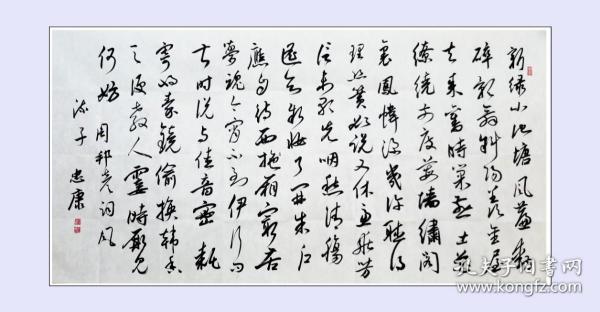 新绿小池塘风帘动
碎影舞斜阳羡金屋
去来旧时巢燕土花
缭绕前度莓墙绣阁
里凤帏深几许听得
理丝簧欲说又休虑乖芳
信未歌先咽愁清觞
遥知新妆了开朱户
应自待月西厢最苦
梦魂今宵不到伊行问
甚时说与佳音密耗
寄将秦镜偷换韩香
天便教人霎时厮见
何妨 周邦彦词风
流子 忠康
孔夫子旧书网
www.kongfz.com